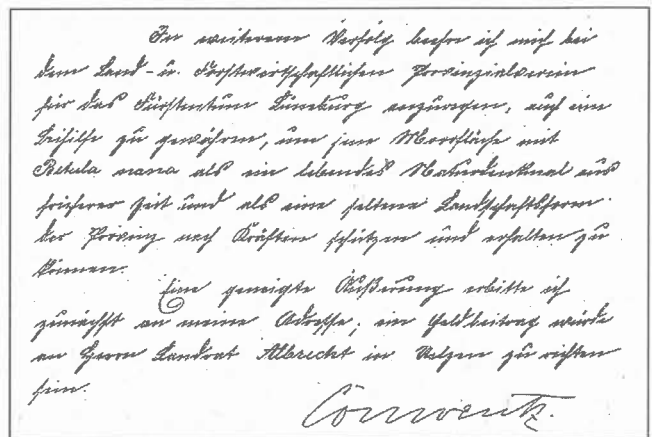 In weiterem Verfolg beehre ich mich bei
dem Land- u. Forstwirtschaftlichen Provinzialverein
für das Fürstentum Lüneburg anzuregen, auch eine
Beihilfe zu gewähren, um jene Moorfläche mit
Betula nana als ein lebendes Naturdenkmal aus
früherer Zeit und als eine seltene Landschaftsform
der Provinz nach Kräften schützen und erhalten zu
können.
Eine geneigte Äußerung erbitte ich
zunächst an meine Adresse; ein Geldbeitrag würde
an Herrn Landrat Albrecht in Uelzen zu richten
sein.
Conwentz.